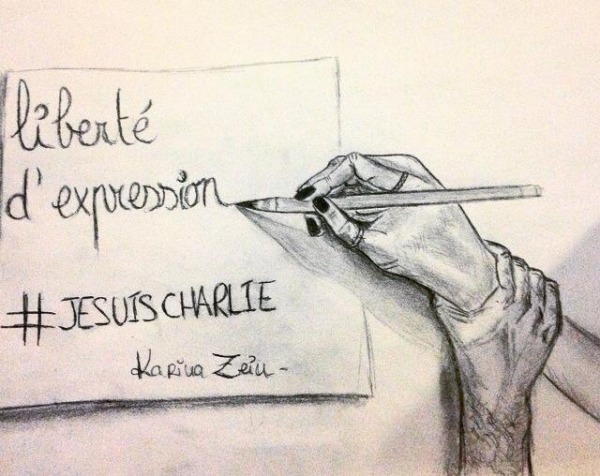 liberté
d'expression
#JESUISCHARLIE
Karina Zein -